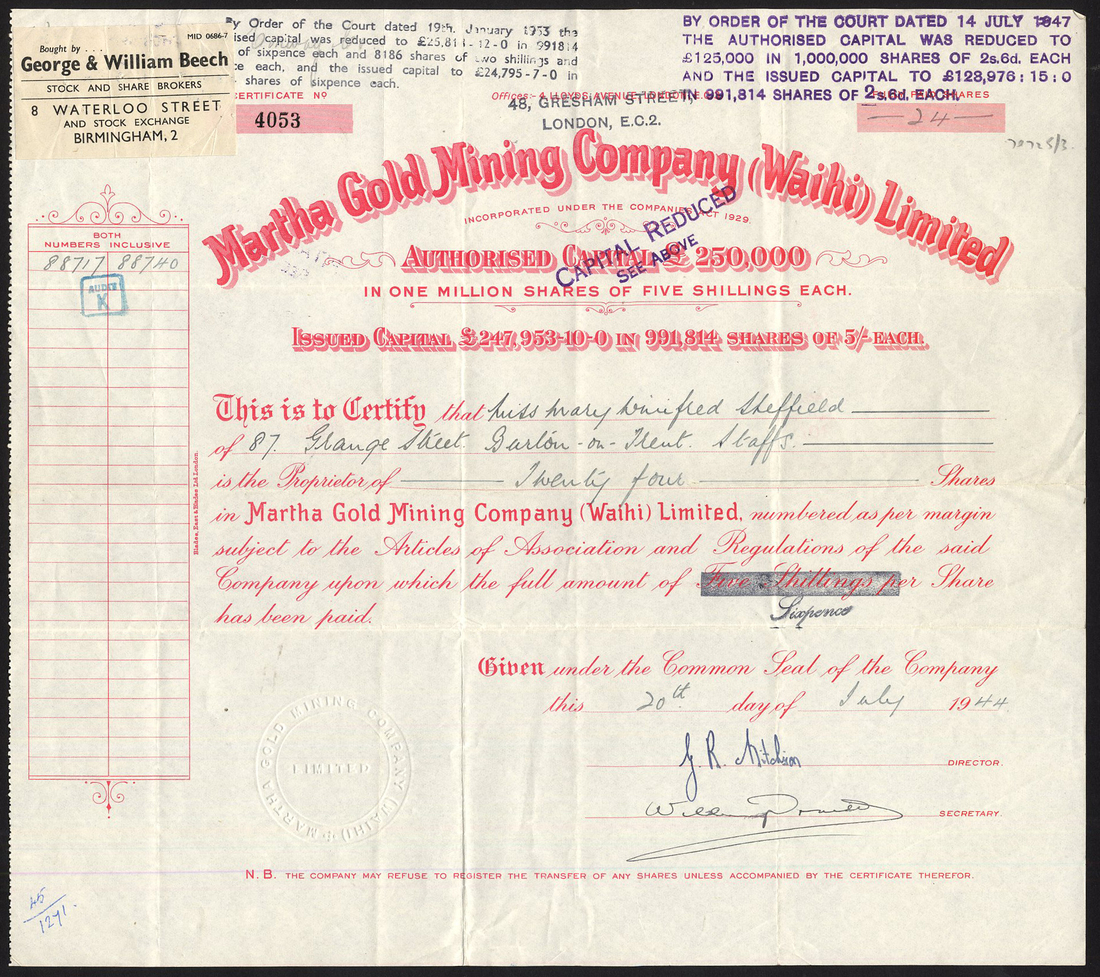 Bought by . . .
MID 0686-7
George & William Beech
STOCK AND SHARE BROKERS
8 WATERLOO STREET
AND STOCK EXCHANGE
BIRMINGHAM, 2
By Order of the Court dated 19th. January 1953 the
ised capital was reduced to £25,811-12-0 in 991814
of sixpence each and 8186 shares of two shillings and
ce each, and the issued capital to £24,795-7-0 in
shares of sixpence each.
BY ORDER OF THE COURT DATED 14 JULY 1947
THE AUTHORISED CAPITAL WAS REDUCED TO
£125,000 IN 1,000,000 SHARES OF 2s.6d. EACH
AND THE ISSUED CAPITAL TO £123,976:15:0
IN 991,814 SHARES OF 2s.6d. EACH.
CERTIFICATE Nº
4053
Offices:- 4, LLOYDS AVENUE,
48, GRESHAM STREET,
LONDON, E.C.2.
SHARES
24
Martha Gold Mining Company (Waihi) Limited
INCORPORATED UNDER THE COMPANIES ACT 1929.
AUTHORISED CAPITAL £ 250,000
CAPITAL REDUCED
SEE ABOVE
IN ONE MILLION SHARES OF FIVE SHILLINGS EACH.
ISSUED CAPITAL £247,953-10-0 IN 991,814 SHARES OF 5/- EACH.
BOTH
NUMBERS INCLUSIVE
88717 88740
AUDIT
K
This is to Certify that Miss Mary Winifred Sheffield
of 87. Grange Street. Burton-on-Trent. Staffs.
is the Proprietor of Twenty four Shares
in Martha Gold Mining Company (Waihi) Limited, numbered as per margin
subject to the Articles of Association and Regulations of the said
Company upon which the full amount of Five Shillings per Share
Sixpence
has been paid.
Blades, East & Blades Ltd. London.
Given under the Common Seal of the Company
this 20th. day of July 1944
J. R. Aitchison
DIRECTOR.
SECRETARY.
MARTHA GOLD MINING COMPANY (WAIHI)
LIMITED
N.B. THE COMPANY MAY REFUSE TO REGISTER THE TRANSFER OF ANY SHARES UNLESS ACCOMPANIED BY THE CERTIFICATE THEREFOR.
45
1271.